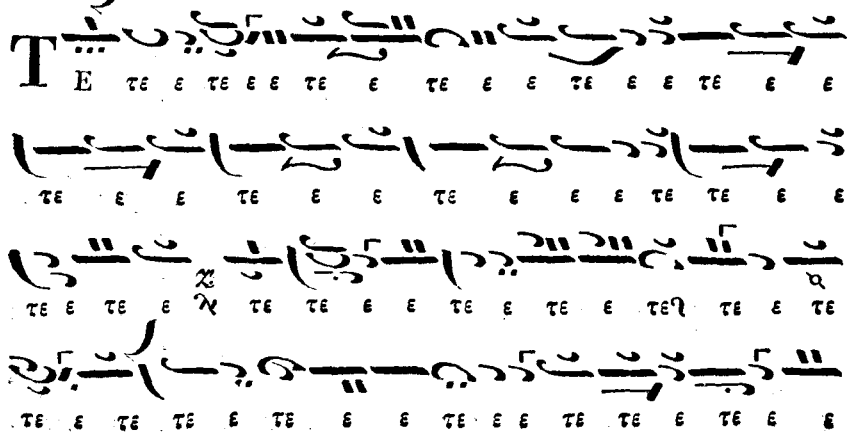 ΤΕ τε ε τε ε ε τε ε τε ε ε τε ε ε τε ε ε
τε ε ε τε ε ε τε ε ε ε τε τε ε ε
τε ε τε ε τε τε ε ε τε ε τε ε τε τε ε τε
τε ε τε τε ε τε ε ε τε ε ε τε τε ε τε ε ε